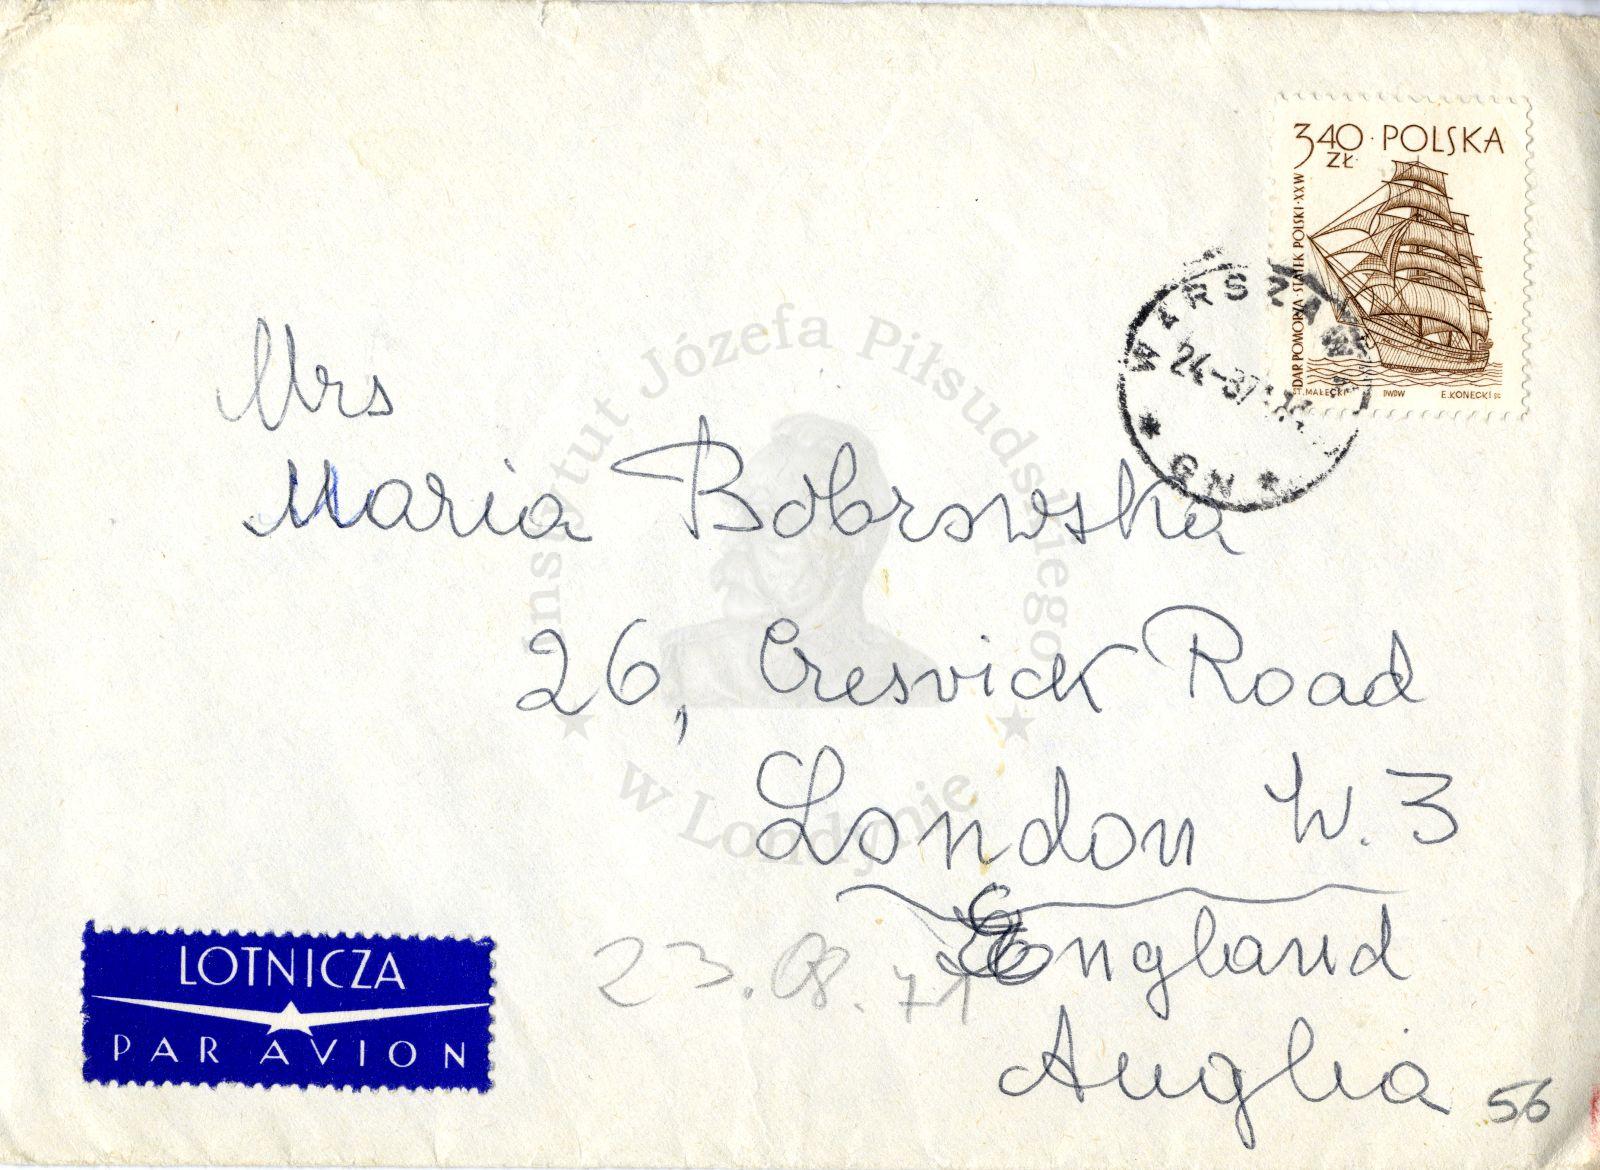 3.40 ZŁ · POLSKA
DAR POMORZA · STATEK POLSKI · XX W
ST. MAŁECKI PWPW E. KONECKI SC
WARSZAWA
24.-8.71
* GN *
Mrs
Maria Bobrowska
26, Cresvick Road
London W. 3
England
Anglia
23.08.71
56
LOTNICZA
PAR AVION
Instytut Józefa Piłsudskiego
w Londynie